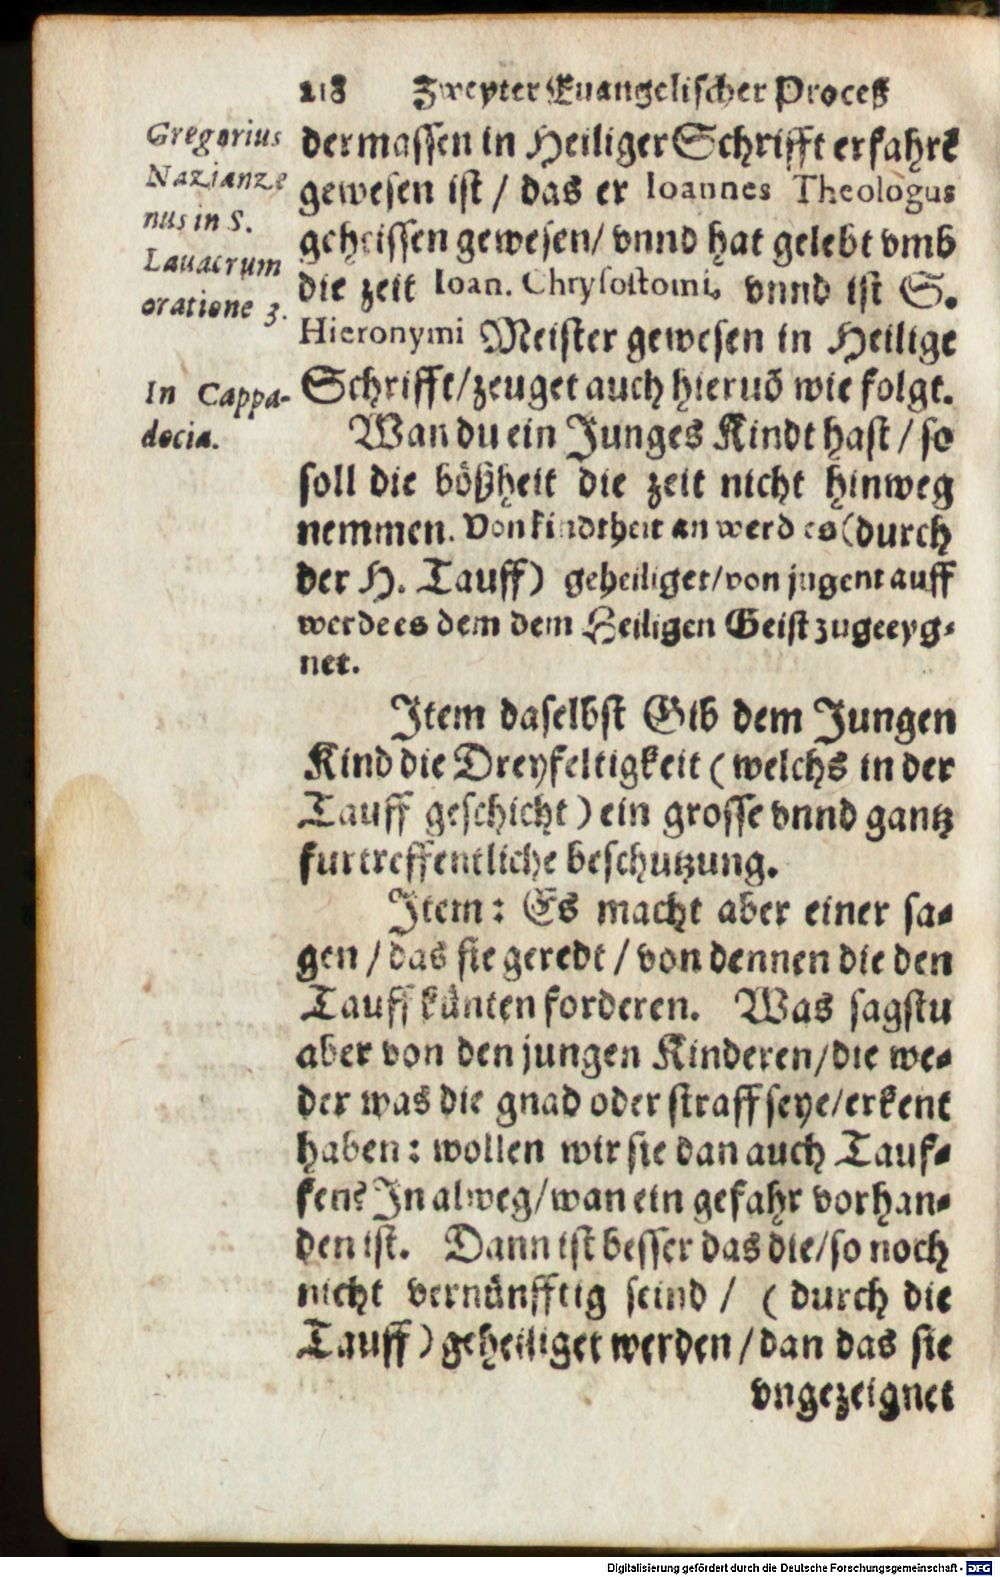 218 Zweyter Euangelischer Proceß
Gregorius
Nazianze
nus in S.
Lauacrum
oratione 3.
In Cappa-
docia.
dermassen in Heiliger Schrifft erfahrt
gewesen ist / das er Ioannes Theologus
geheissen gewesen/ vnnd hat gelebt vmb
die zeit Ioan. Chrysostomi, vnnd ist S.
Hieronymi Meister gewesen in Heilige
Schrifft/zeuget auch hieruō wie folgt.
Wan du ein Junges Kindt hast / so
soll die bößheit die zeit nicht hinweg
nemmen. Von kindtheit an werd es (durch
der H. Tauff) geheiliget/von jugent auff
werde es dem dem Heiligen Geist zugeeyg-
net.
Item daselbst Gib dem Jungen
Kind die Dreyfeltigkeit ( welchs in der
Tauff geschicht ) ein grosse vnnd gantz
furtreffentliche beschutzung.
Item: Es macht aber einer sa-
gen / das sie geredt / von dennen die den
Tauff künten forderen. Was sagstu
aber von den jungen Kinderen/die we-
der was die gnad oder straff seye/erkent
haben: wollen wir sie dan auch Tauf-
fen? In alweg/wan ein gefahr vorhan-
den ist. Dann ist besser das die/so noch
nicht vernünfftig seind / ( durch die
Tauff ) geheiliget werden / dan das sie
vngezeignet
Digitalisierung gefördert durch die Deutsche Forschungsgemeinschaft - DFG